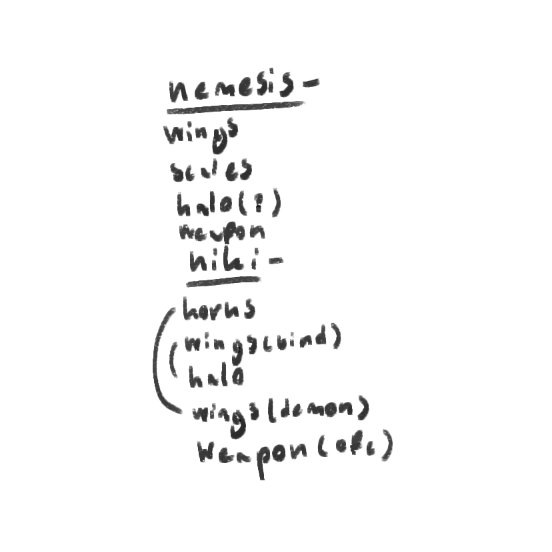 nemesis -
wings
scales
halo(?)
weapon
niki -
horns
wings(bind)
halo
wings(demon)
weapon(ofc)